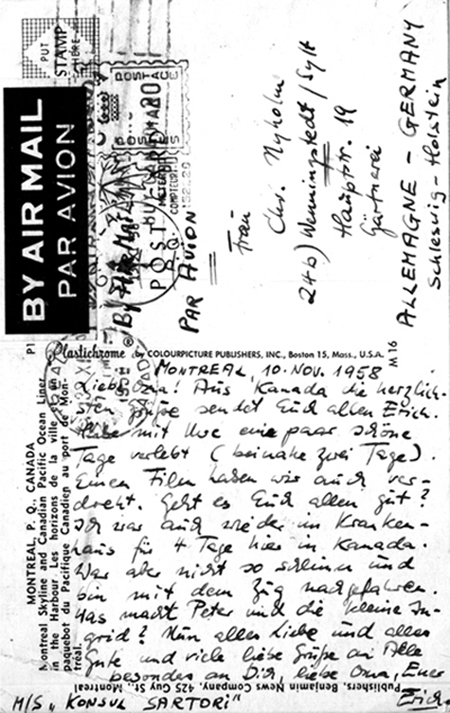 PUT
STAMP
HERE
BY AIR MAIL
PAR AVION
POSTAGE
PAR AVION
Frau
Chr. Nyholm
24b) Wenningstedt/Sylt
Hauptstr. 19
Gärtnerei
ALLEMAGNE - GERMANY
Schleswig-Holstein
P1
Plastichrome ® by COLOURPICTURE PUBLISHERS, INC., Boston 15, Mass., U.S.A.
M 16
MONTREAL, P. Q., CANADA
Montreal Skyline and Canadian Pacific Ocean Liner
in the Harbour. Les horizons de la ville et un
paquebot du Pacifique Canadien au port de Mon-
treal.
MONTREAL, 10. NOV. 1958
Liebe Oma! Aus Kanada die herzlich-
sten Grüße sendet Euch allen Erich.
Habe mit Uwe eine paar schöne
Tage verlebt (beinahe zwei Tage).
Einen Film haben wir auch ver-
dreht. Geht es Euch allen gut?
Ich war auch wieder im Kranken-
haus für 4 Tage hier in Kanada.
War aber nicht so schlimm und
bin mit dem Zug nachgefahren.
Was macht Peter und die kleine In-
grid? Nun alles Liebe und alles
Gute und viele liebe Grüße an Alle
besonders an Dich, liebe Oma, Euer
Erich
M/S „KONSUL SARTORI"
Publishers, Benjamin News Company, 425 Guy St., Montreal